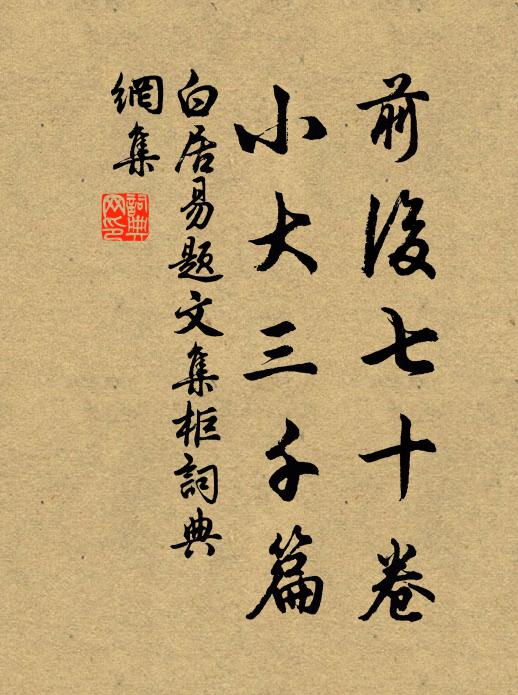 前後七十卷
小大三千篇
白居易題文集柜詞典
網集
詞典
网印